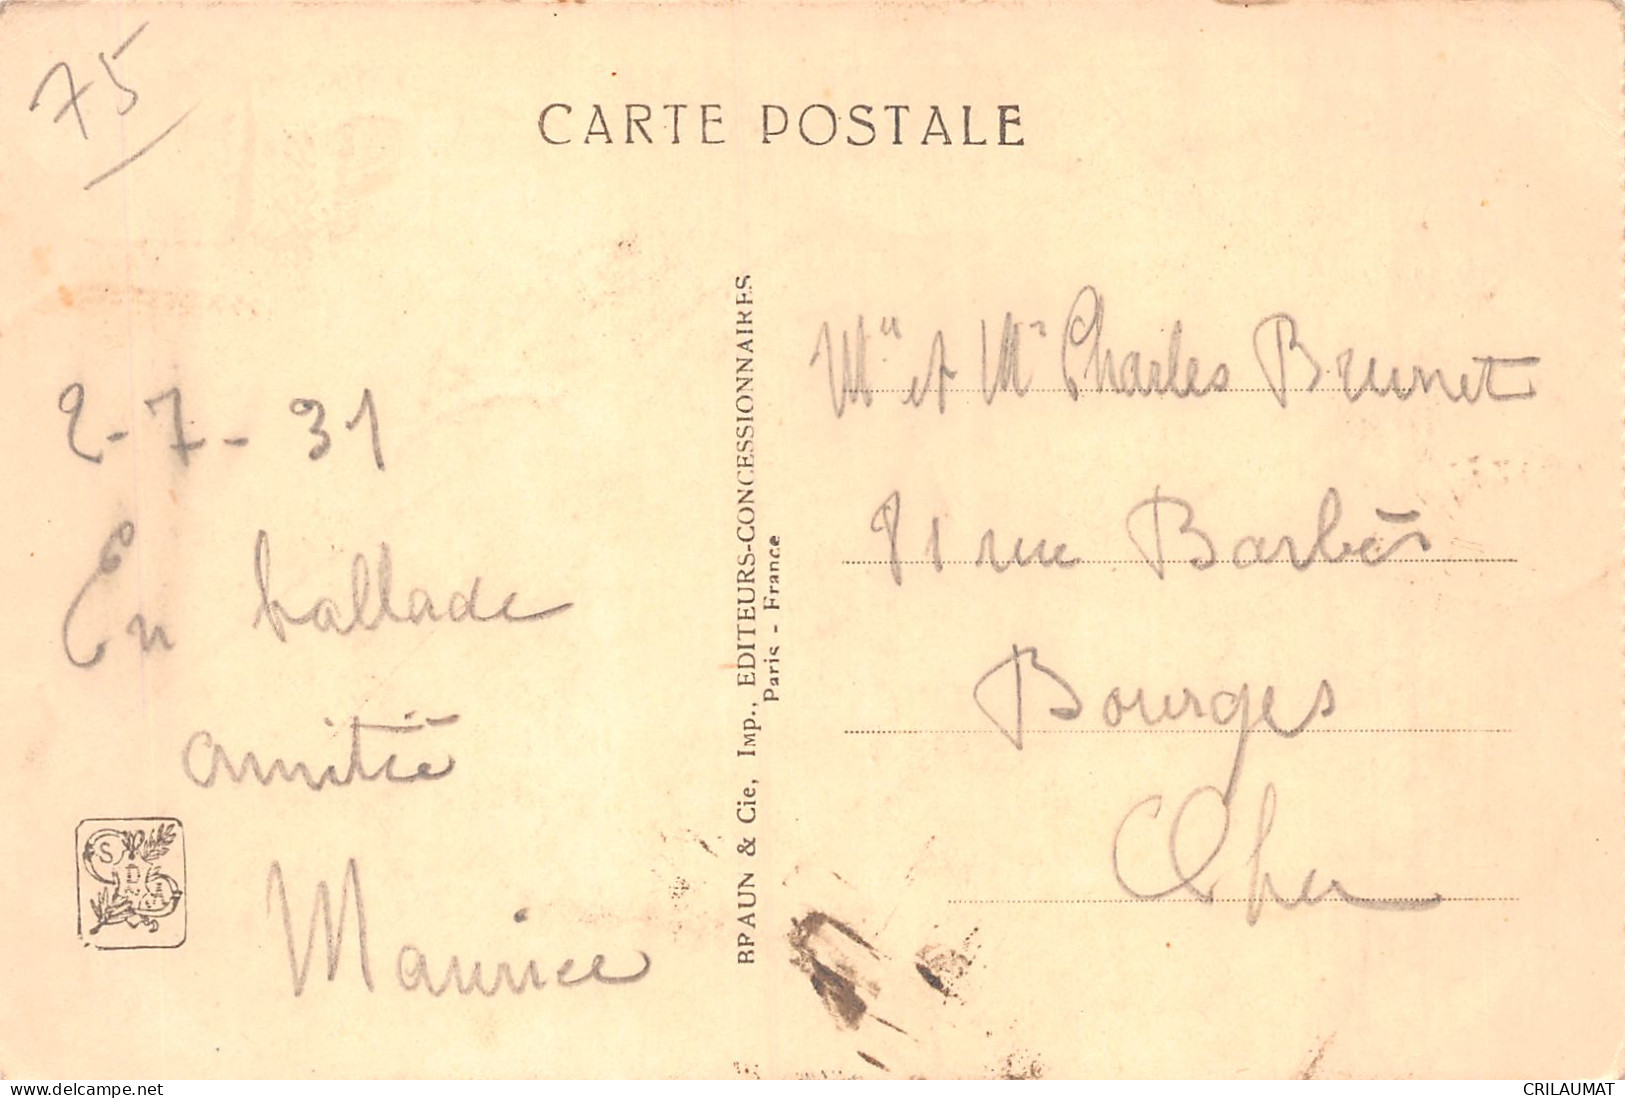 75
CARTE POSTALE
2-7-31
En ballade
amitié
Maurice
BRAUN & Cie, IMP., EDITEURS-CONCESSIONNAIRES
Paris - France
et Mr Charles Brunet
81 rue Barbès
Bourges
Cher
www.delcampe.net
CRILAUMAT